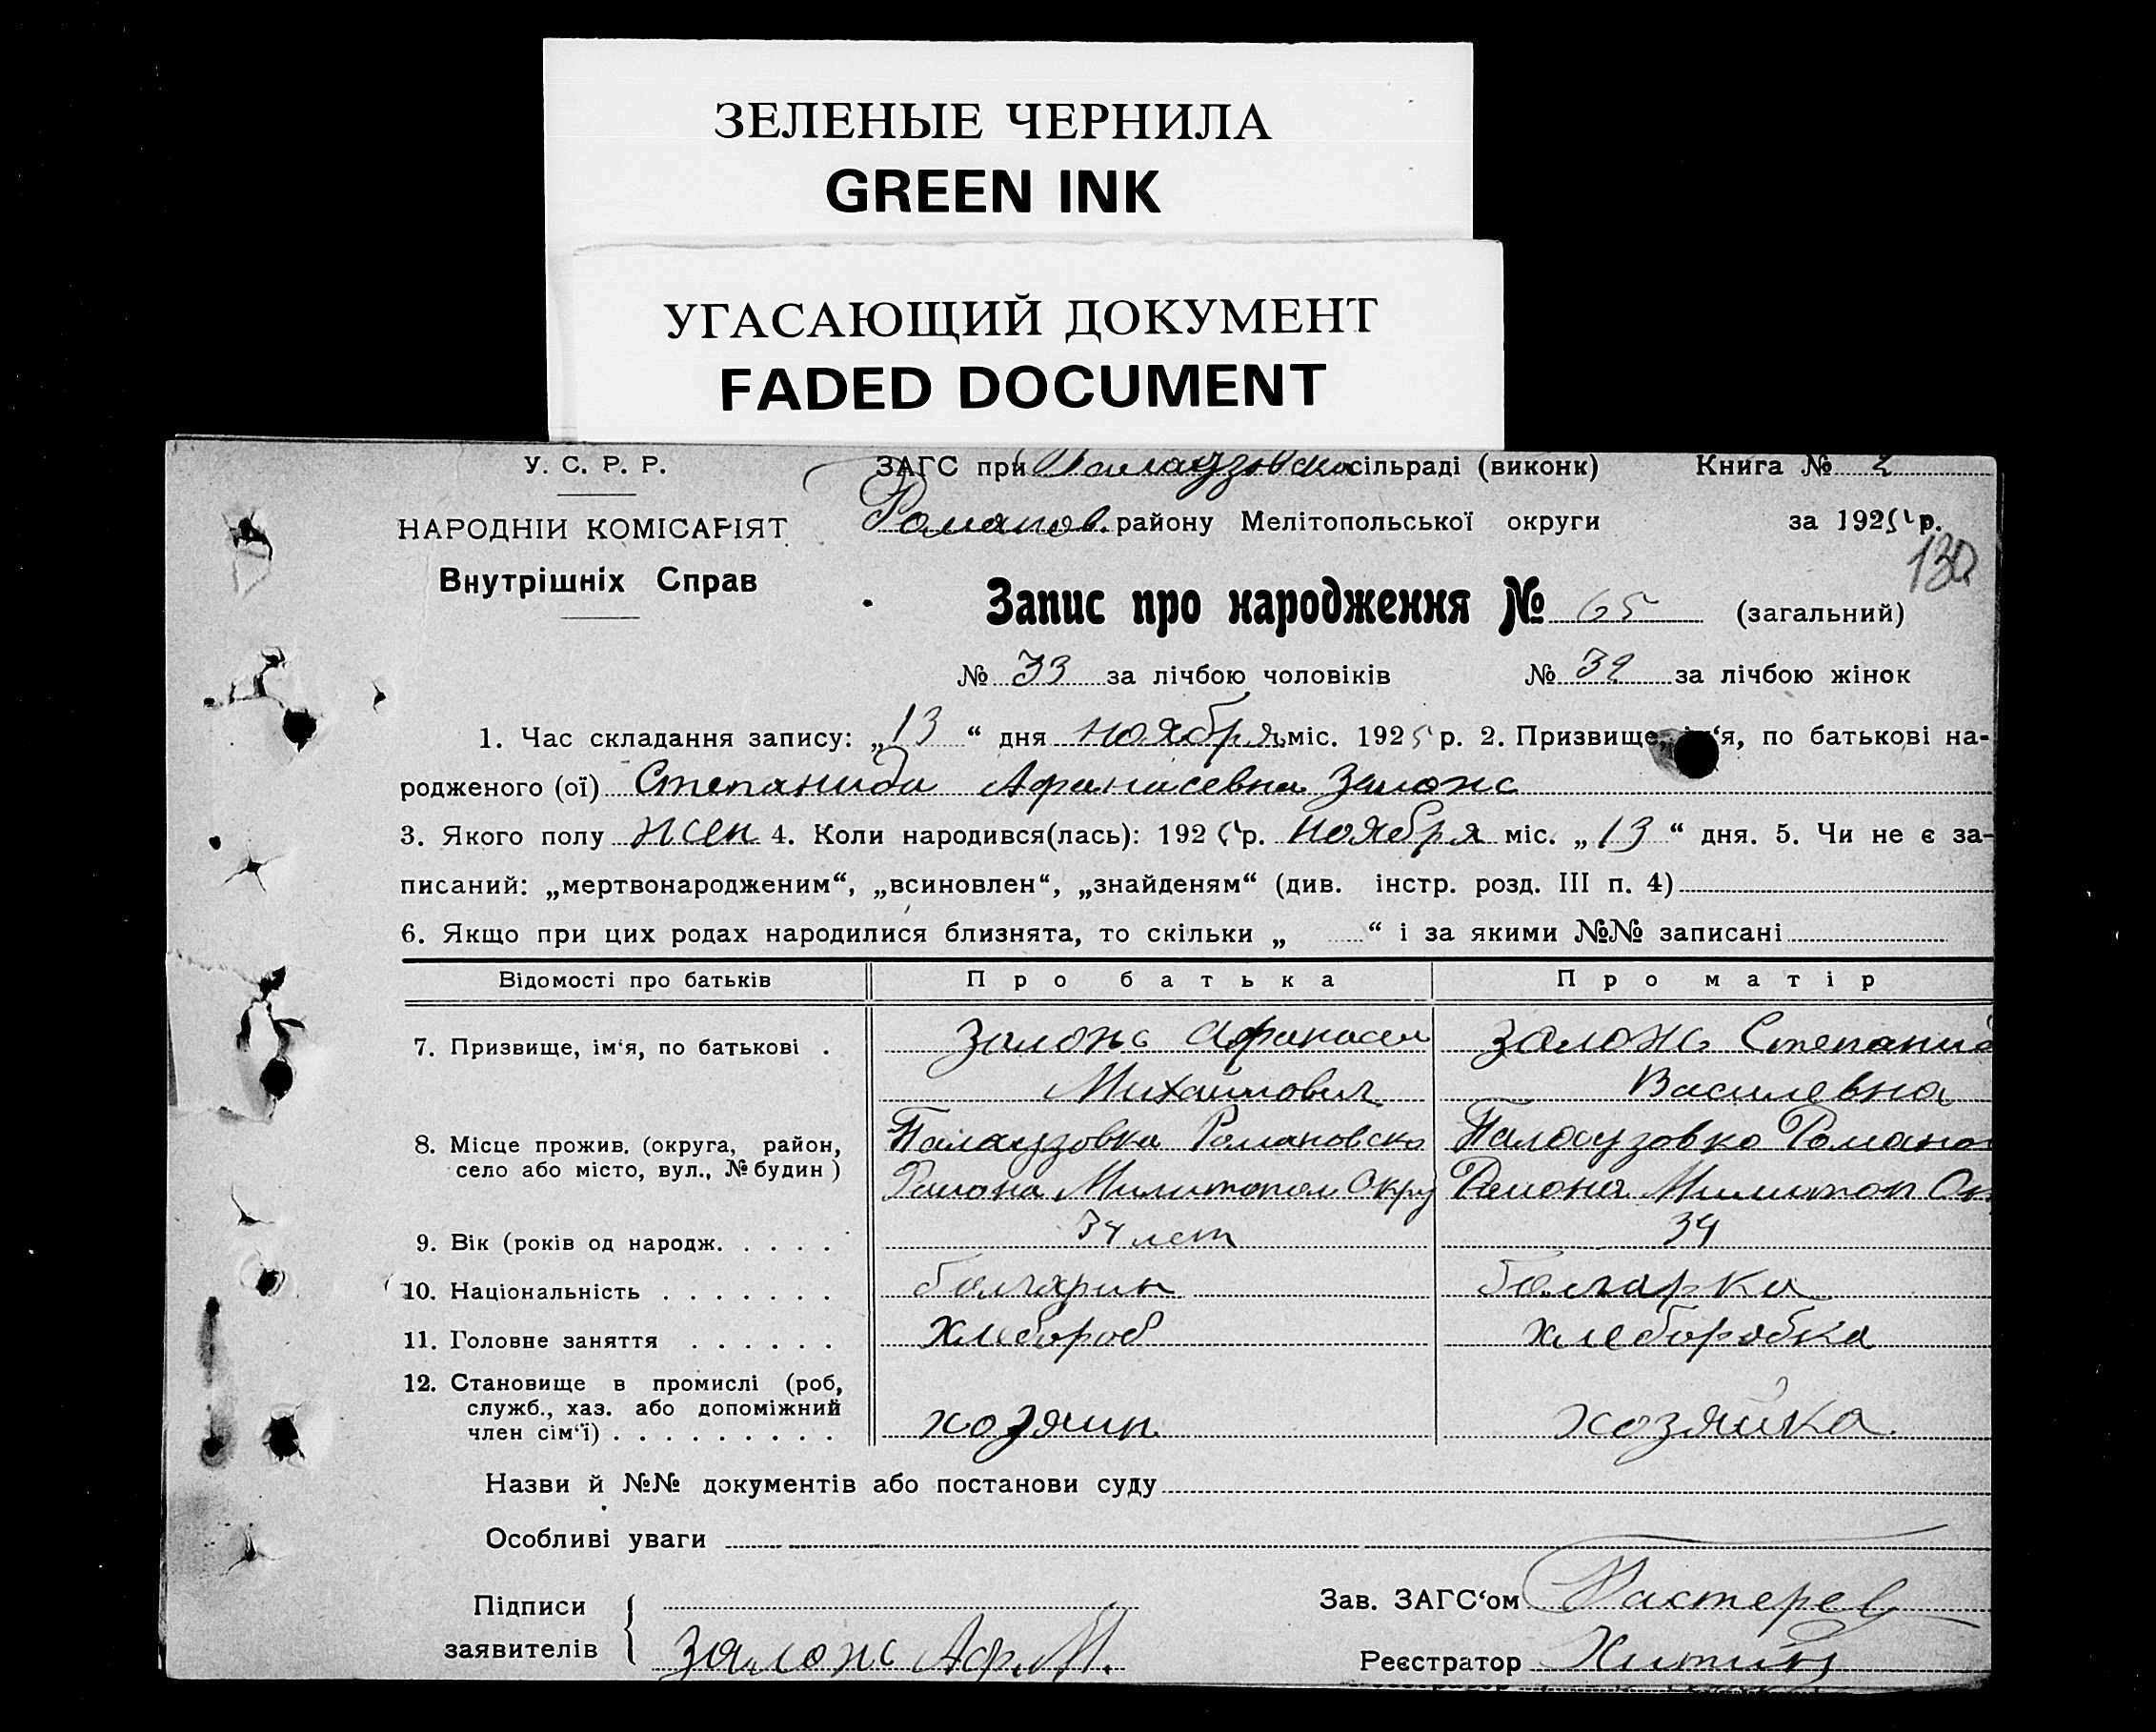 ЗЕЛЕНЫЕ ЧЕРНИЛА
GREEN INK
УГАСАЮЩИЙ ДОКУМЕНТ
FADED DOCUMENT
У. С. Р. Р.
ЗАГС при Палаузовско сільраді (виконк) Книга № 2
Романов. району Мелітопольської округи за 1925 р.
НАРОДНІИ КОМІСАРІЯТ
130
Внутрішніх Справ
Запис про народження № 65 (загальний)
№ 33 за лічбою чоловіків № 32 за лічбою жінок
1. Час складання запису: „13“ дня ноября міс. 1925 р. 2. Призвище, ім‘я, по батькові на-
родженого (ої) Степанида Афанасевна Залож
3. Якого полу жен 4. Коли народився(лась): 1925 р. ноября міс. „13“ дня. 5. Чи не є за-
писаний: „мертвонародженим“, „всиновлен“, „знайденям“ (див. інстр. розд. III п. 4)
6. Якщо при цих родах народилися близнята, то скільки „ “ і за якими №№ записані
Відомості про батьків Про батька Про матір
7. Призвище, ім‘я, по батькові . Залож Афанасий Залож Степанид
Михайлович Василевна
8. Місце прожив. (округа, район, Палаузовка Романовско Палаузовко Романов
село або місто, вул., № будин) Раиона Милитопол Окру Раиона Милитоп Ок
9. Вік (років од народж. . . . . 34 лет 34
10. Національність . . . . . . . болгарин болгарка
11. Головне заняття . . . . . . Хлебороб хлеборобка
12. Становище в промислі (роб,
служб., хаз. або допоміжний
член сім‘ї) . . . . . . . . . хозяин хозяйка
Назви й №№ документів або постанови суду
Особливі уваги
Підписи Зав. ЗАГС‘ом
заявителів Залож Аф. М. Реєстратор